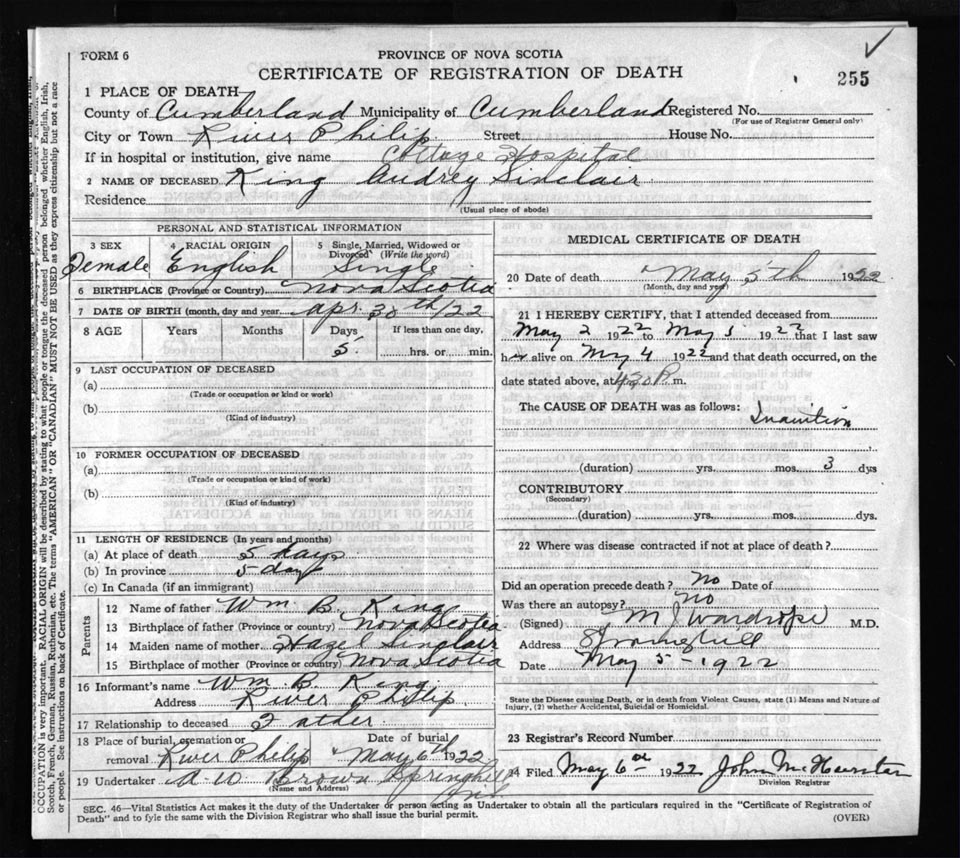 FORM 6
PROVINCE OF NOVA SCOTIA
CERTIFICATE OF REGISTRATION OF DEATH
255
1 PLACE OF DEATH
County of Cumberland Municipality of Cumberland Registered No.
(For use of Registrar General only)
City or Town River Philip Street House No.
If in hospital or institution, give name Cottage Hospital
2 NAME OF DECEASED King Audrey Sinclair
Residence
(Usual place of abode)
PERSONAL AND STATISTICAL INFORMATION
3 SEX 4 RACIAL ORIGIN 5 Single, Married, Widowed or
Divorced (Write the word)
Female English Single
6 BIRTHPLACE (Province or Country) Nova Scotia
7 DATE OF BIRTH (month, day and year) Apr. 30th/22
8 AGE Years Months Days If less than one day,
5 hrs. or min.
9 LAST OCCUPATION OF DECEASED
(a)
(Trade or occupation or kind or work)
(b)
(Kind of industry)
10 FORMER OCCUPATION OF DECEASED
(a)
(Trade or occupation or kind of work)
(b)
(Kind of industry)
11 LENGTH OF RESIDENCE (In years and months)
(a) At place of death 5 days
(b) In province 5 days
(c) In Canada (if an immigrant)
Parents
12 Name of father Wm. B. King
13 Birthplace of father (Province or country) Nova Scotia
14 Maiden name of mother Hazel Sinclair
15 Birthplace of mother (Province or country) Nova Scotia
16 Informant's name Wm. B. King
Address River Philip
17 Relationship to deceased Father
18 Place of burial, cremation or removal River Philip Date of burial May 6th 1922
19 Undertaker A W Brown Springhill
(Name and Address)
MEDICAL CERTIFICATE OF DEATH
20 Date of death May 5th 1922
(Month, day and year)
21 I HEREBY CERTIFY, that I attended deceased from
May 2 1922 to May 5 1922 that I last saw
her alive on May 4 1922 and that death occurred, on the
date stated above, at 4.30 P. m.
The CAUSE OF DEATH was as follows: Inanition
(duration) yrs. mos. 3 dys
CONTRIBUTORY
(Secondary)
(duration) yrs. mos. dys.
22 Where was disease contracted if not at place of death?
Did an operation precede death? no Date of
Was there an autopsy? no
(Signed) M J Wardrope M.D.
Address Springhill
Date May 5 - 1922
State the Disease causing Death, or in death from Violent Causes, state (1) Means and Nature of
Injury, (2) whether Accidental, Suicidal or Homicidal.
23 Registrar's Record Number
24 Filed May 6 1922 John
Division Registrar
SEC. 46—Vital Statistics Act makes it the duty of the Undertaker or person acting as Undertaker to obtain all the particulars required in the "Certificate of Registration of
Death" and to fyle the same with the Division Registrar who shall issue the burial permit.
(OVER)
OCCUPATION is very important. RACIAL ORIGIN will be described by stating to what people or tongue the deceased person belonged whether English, Irish,
Scotch, French, German, Russian, Ruthenian, etc. The terms "AMERICAN" OR "CANADIAN" MUST NOT BE USED as they express citizenship but not a race
or people. See instructions on back of Certificate.